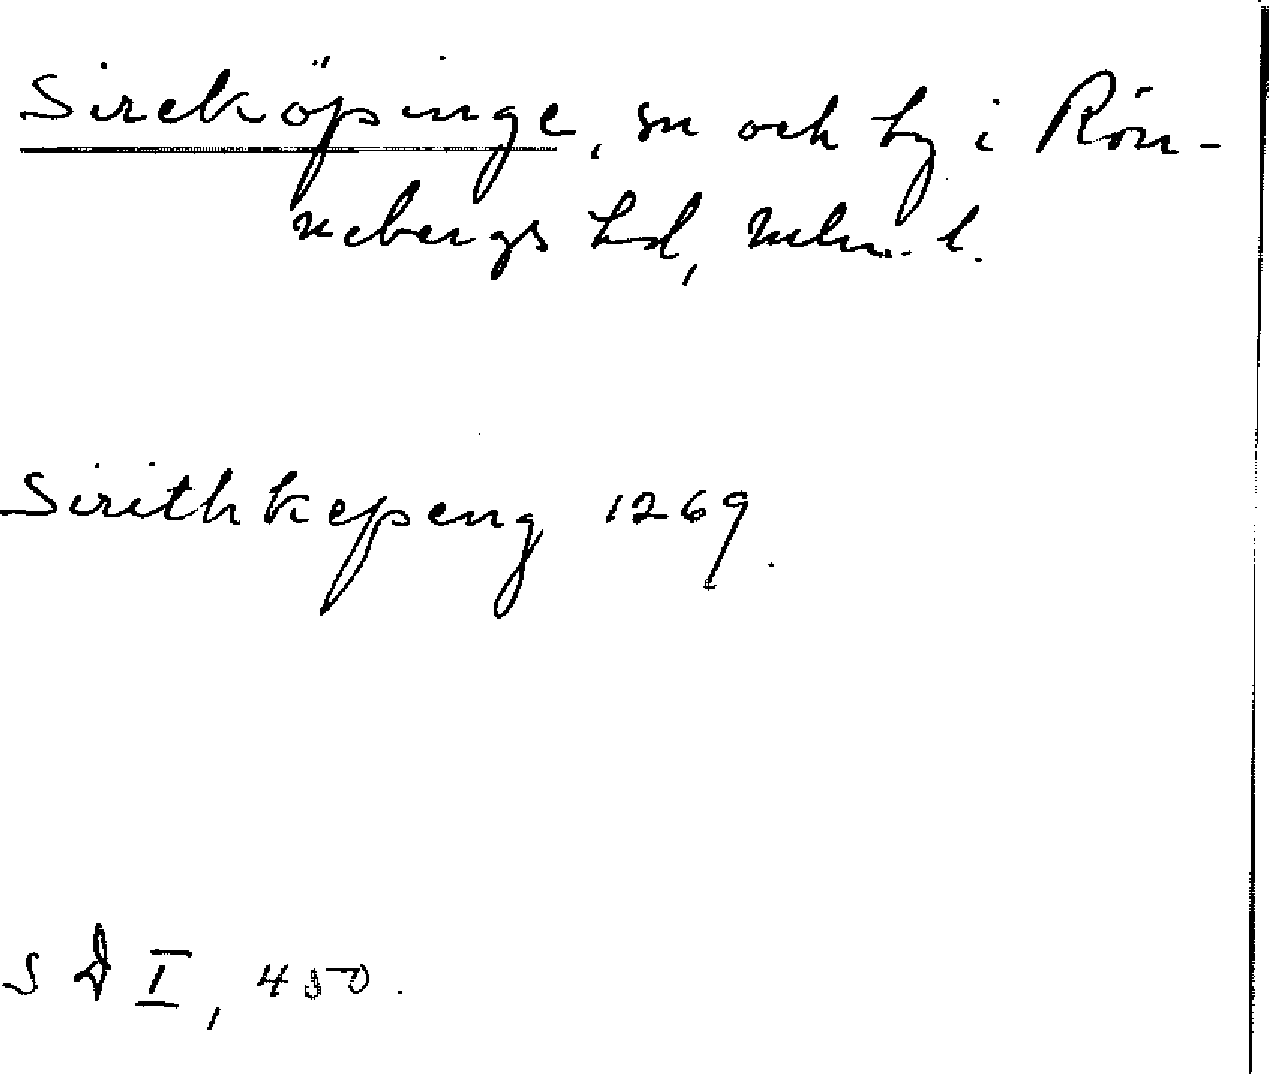 Sireköpinge, sn och by i Rön-
nebergs hd, Mlm. l.
Sirithkepeng 1269.
S D I, 450.